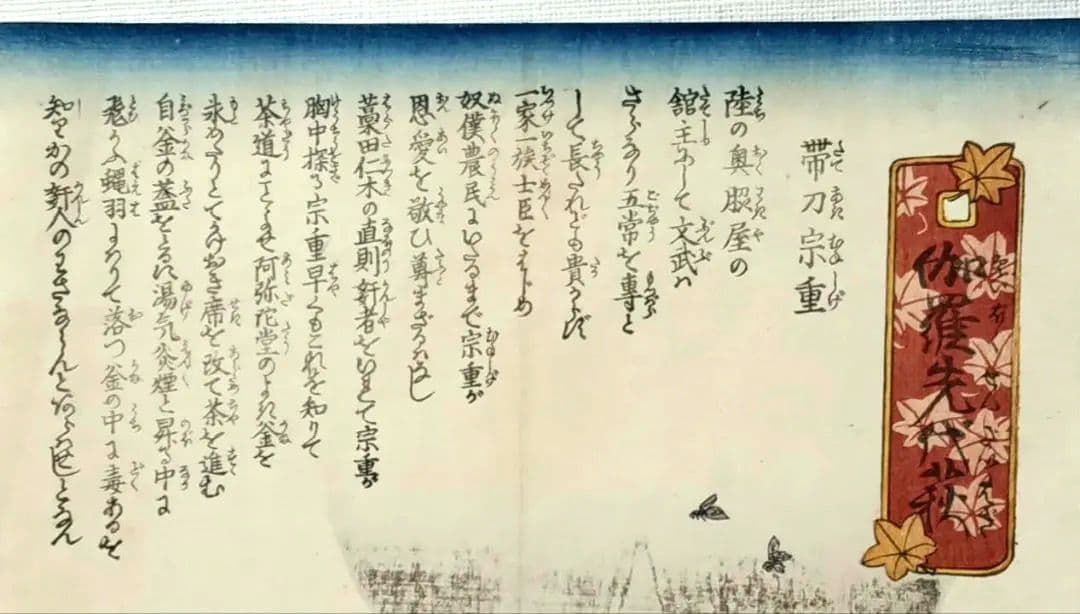 伽羅先代萩
帯刀宗重
陸の奥 屋の
館主にして文武は
さらなり五常を専と
して長たれども貴からず
一家一族士臣をはじめ
奴僕農民にいたるまで宗重が
恩愛を敬ひ尊まざるはなし
藁田仁木の直則奸者をいれて宗重が
胸中探る宗重早くもこれを知りて
茶道にことよせ阿弥陀堂のよき釜を
求めたりとて 席を改て茶を進む
自釜の蓋をとるに湯気炎煙と昇る中に
飛かふ蝿羽 落つ釜の中に毒あるを
知りかの奸人のわざならんと となん